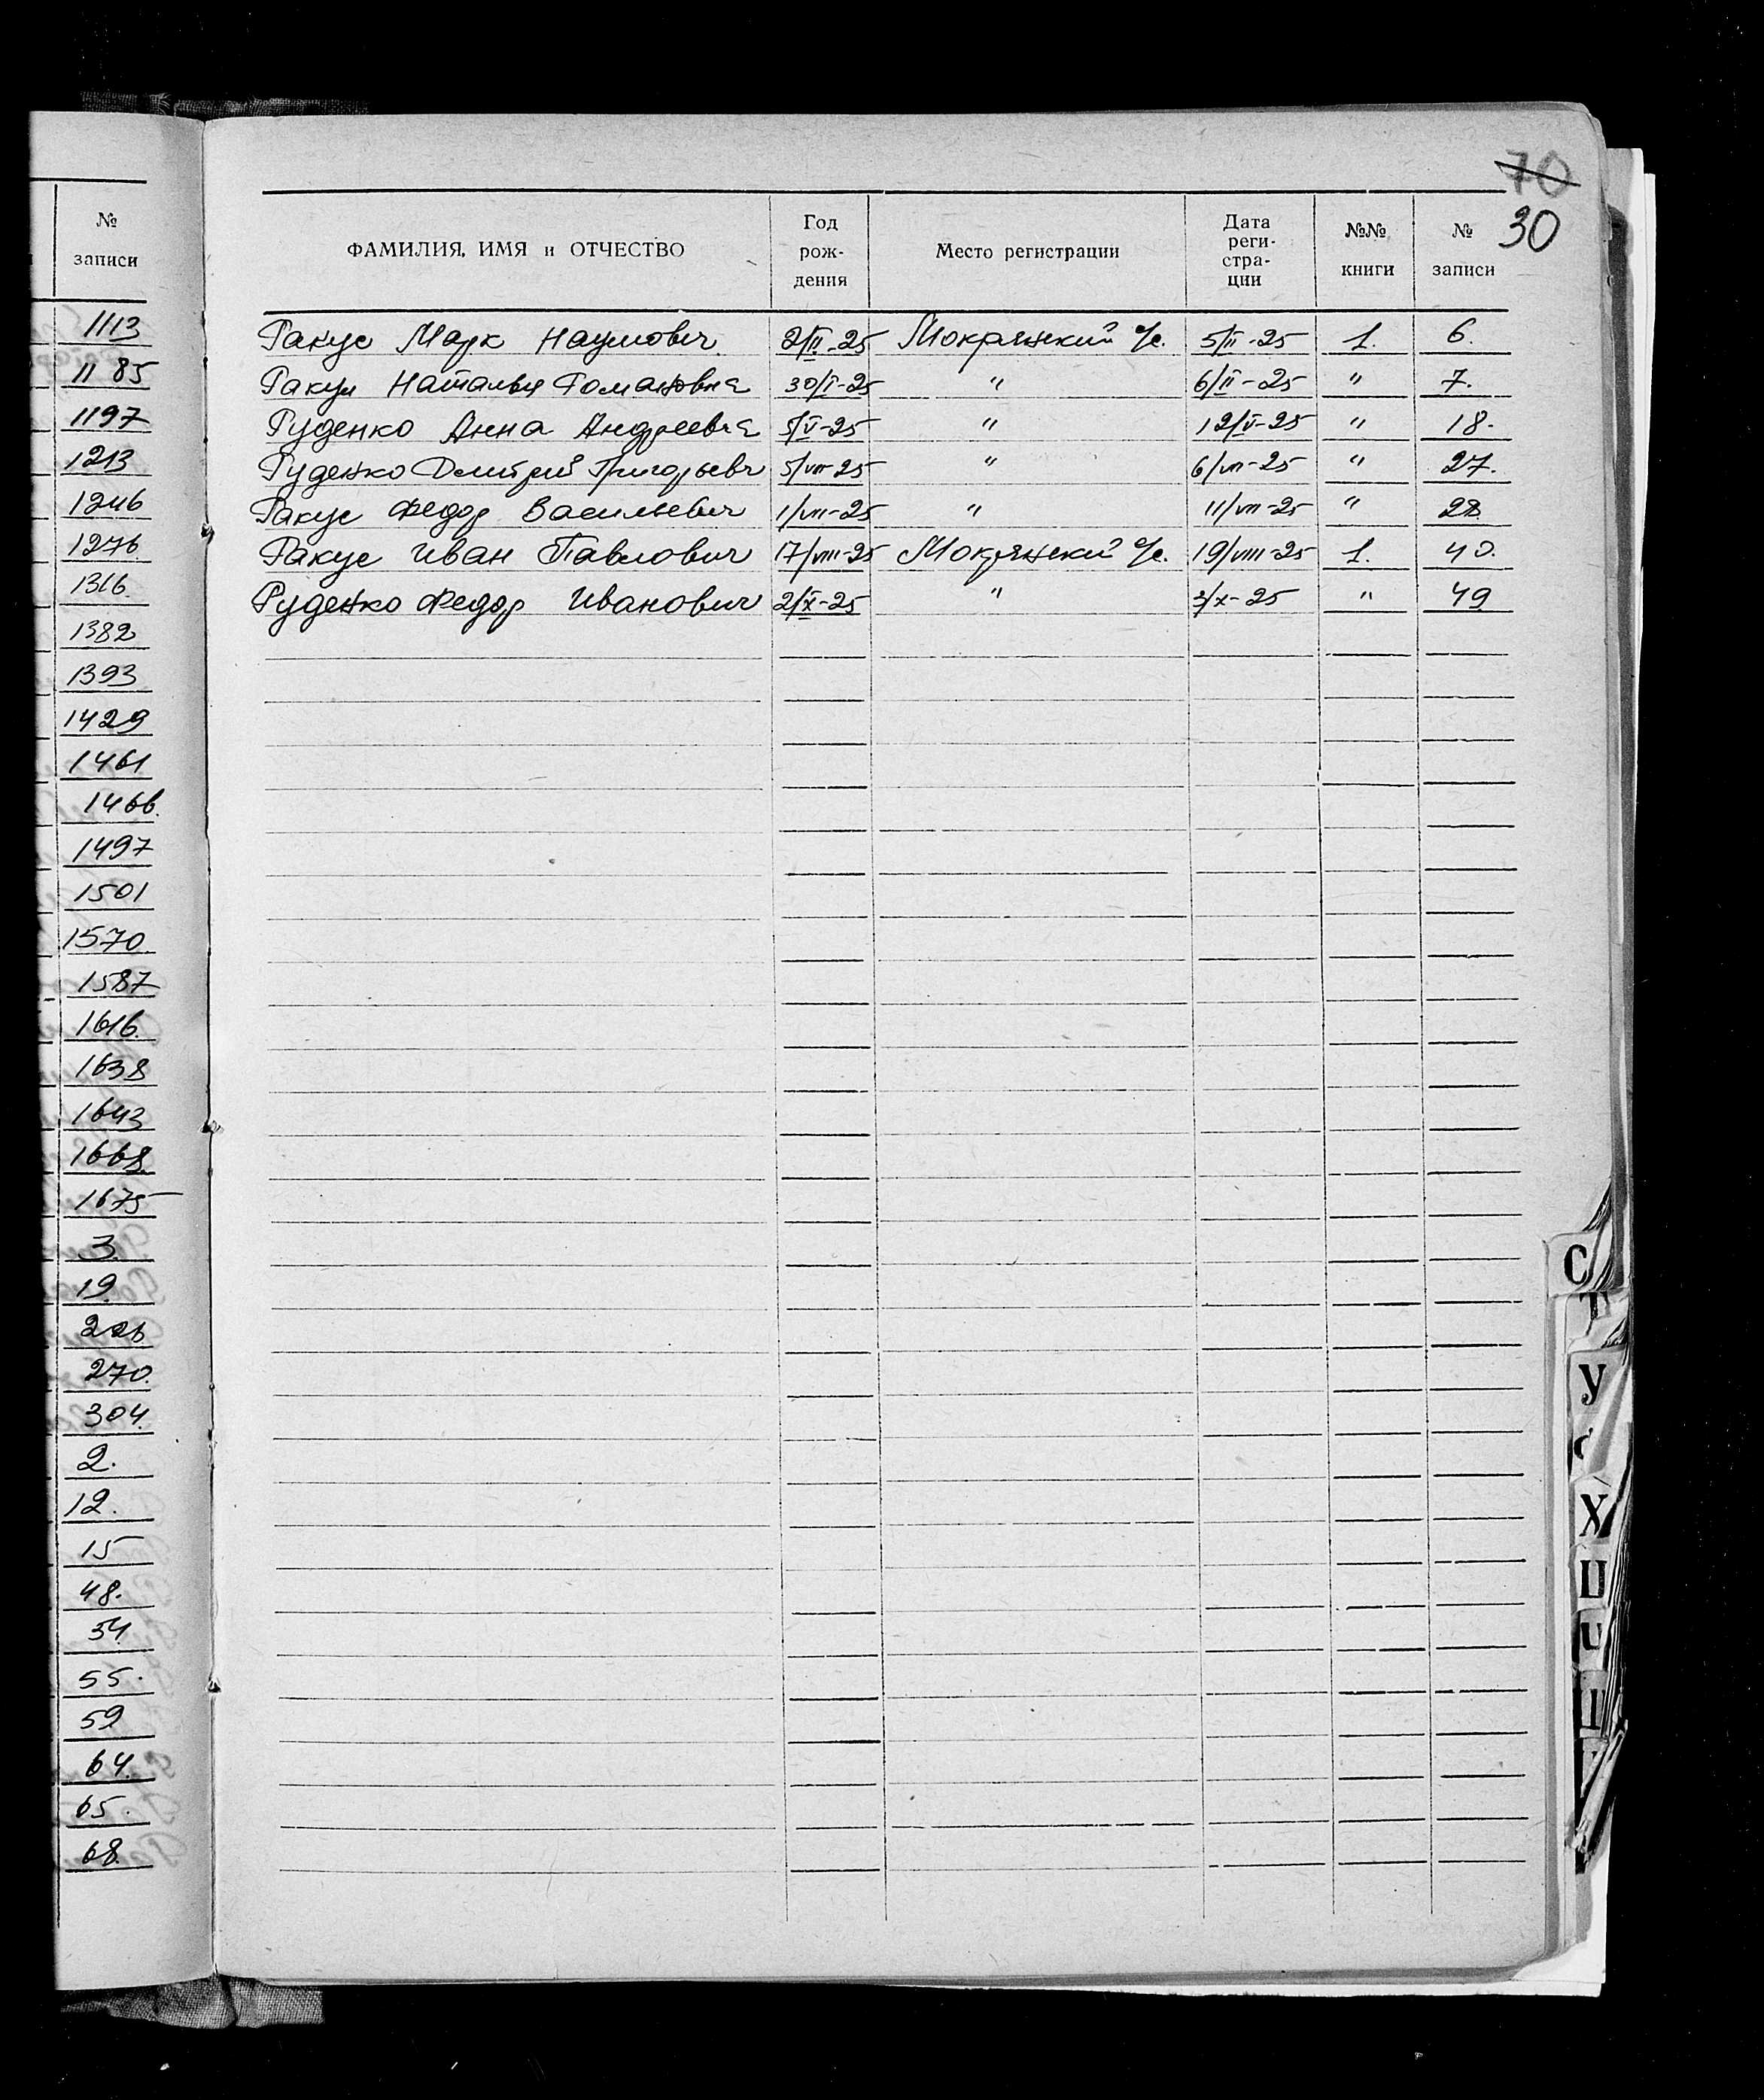 №
записи
1113
1185
1197
1213
1246
1276.
1316.
1382
1393
1429
1461
1466.
1497
1501
1570.
1587
1616.
1638
1643
1668.
1675
3.
19.
270.
304.
2.
12.
15
48.
54.
55.
59
64.
65.
68.
70
30
ФАМИЛИЯ, ИМЯ и ОТЧЕСТВО Год рож- дения Место регистрации Дата реги- стра- ции №№ книги № записи
Ракус Марк Наумович 2/II-25 Мокрянский с/с. 5/II-25 1. 6.
Ракул Наталья Романовна 30/I-25 " 6/II-25 " 7.
Руденко Анна Андреевна 5/V-25 " 12/V-25 " 18.
Руденко Дмитрий Григорьевч 5/VII-25 " 6/VII-25 " 27.
Ракус Федор Васильевич 1/VII-25 " 11/VII-25 " 28.
Ракус Иван Павлович 17/VIII-25 Мокрянский с/с. 19/VIII-25 1. 40.
Руденко Федор Иванович 2/X-25 " 3/X-25 " 49
С
Т
У
Х